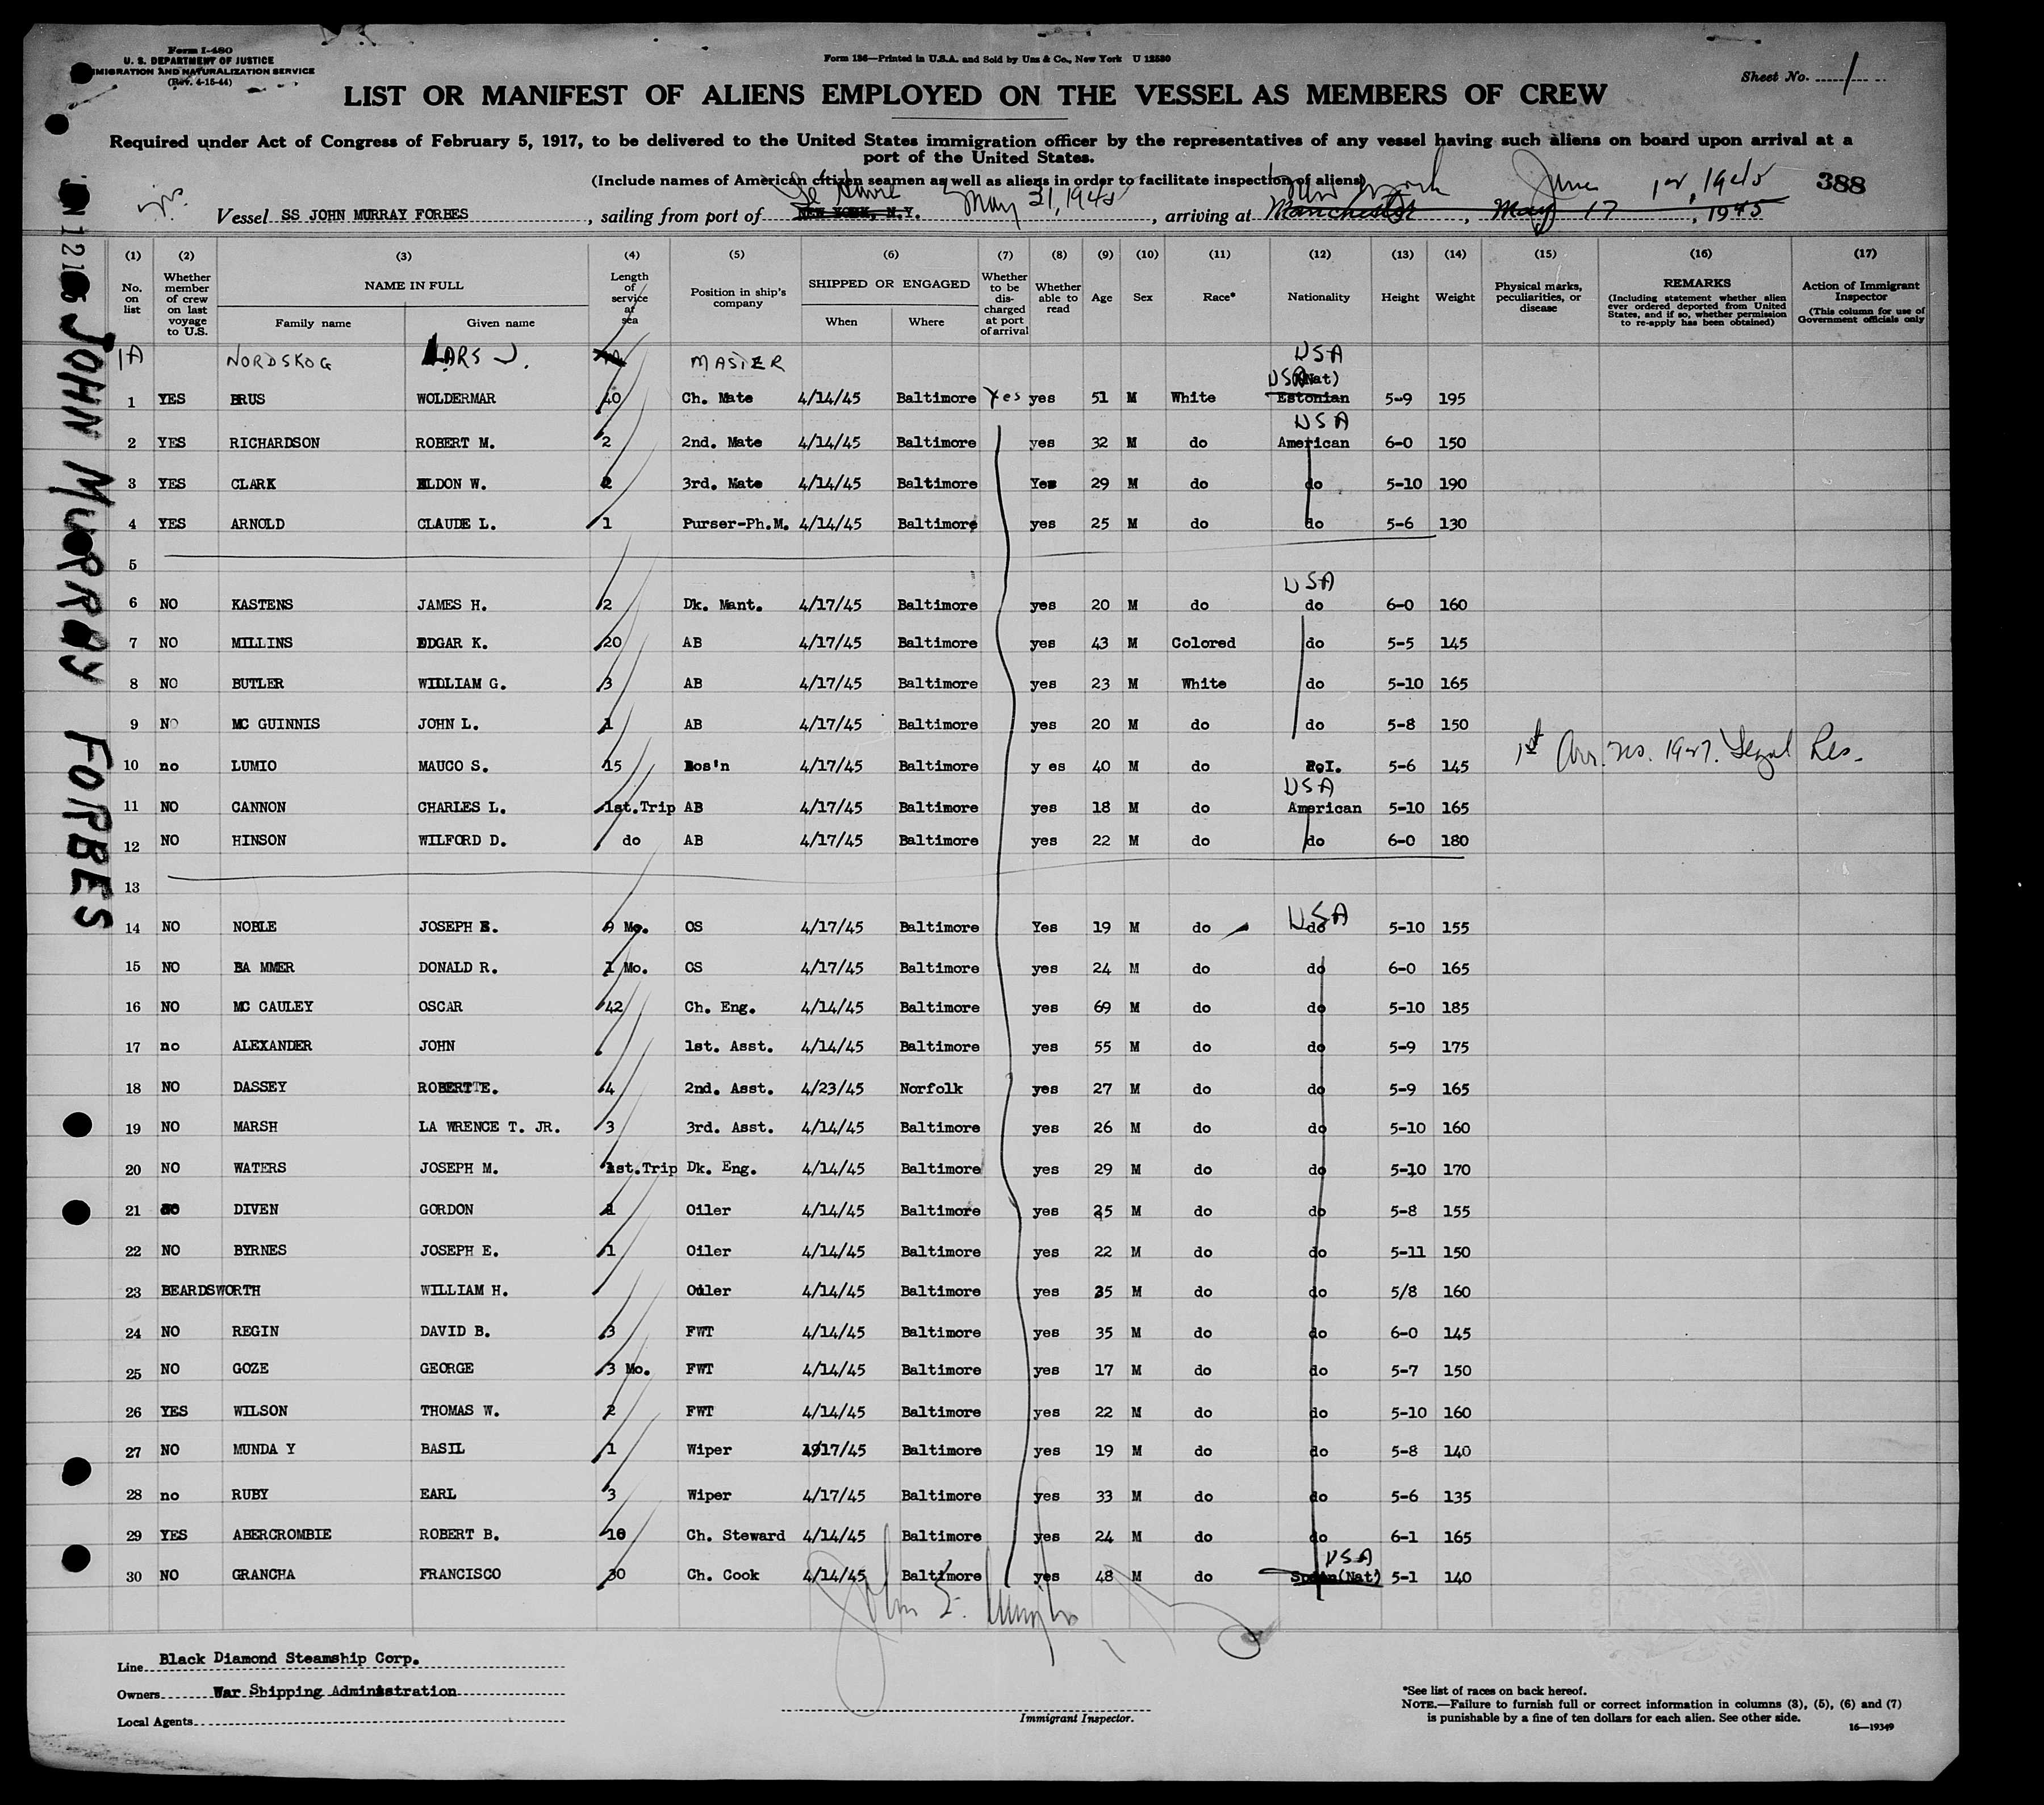 Form I-480
U. S. DEPARTMENT OF JUSTICE
IMMIGRATION AND NATURALIZATION SERVICE
(Rev. 4-15-44)
Form 136—Printed in U.S.A. and Sold by Unz & Co., New York U 12580
Sheet No. 1
LIST OR MANIFEST OF ALIENS EMPLOYED ON THE VESSEL AS MEMBERS OF CREW
Required under Act of Congress of February 5, 1917, to be delivered to the United States immigration officer by the representatives of any vessel having such aliens on board upon arrival at a
port of the United States.
(Include names of American citizen seamen as well as aliens in order to facilitate inspection of aliens)
Le Havre May 21, 1945 New York June 1st, 1945 388
Vessel SS JOHN MURRAY FORBES, sailing from port of NEW YORK, N.Y., arriving at Manchester, May 17, 1945
JOHN MURRAY FORBES
(1) (2) (3) (4) (5) (6) (7) (8) (9) (10) (11) (12) (13) (14) (15) (16) (17)
No. on list
Whether member of crew on last voyage to U.S.
NAME IN FULL
Family name Given name
Length of service at sea
Position in ship's company
SHIPPED OR ENGAGED
When Where
Whether to be discharged at port of arrival
Whether able to read
Age
Sex
Race*
Nationality
Height
Weight
Physical marks, peculiarities, or disease
REMARKS
(Including statement whether alien ever ordered deported from United States, and if so, whether permission to re-apply has been obtained)
Action of Immigrant Inspector
(This column for use of Government officials only
1A NORDSKOG LARS J. MASTER USA
1 YES BRUS WOLDERMAR 40 Ch. Mate 4/14/45 Baltimore Yes yes 51 M White USA (Nat) Estonian 5-9 195
2 YES RICHARDSON ROBERT M. 2 2nd. Mate 4/14/45 Baltimore yes 32 M do USA American 6-0 150
3 YES CLARK ELDON W. 2 3rd. Mate 4/14/45 Baltimore Yes 29 M do do 5-10 190
4 YES ARNOLD CLAUDE L. 1 Purser-Ph.M. 4/14/45 Baltimore yes 25 M do do 5-6 130
5
6 NO KASTENS JAMES H. 2 Dk. Mant. 4/17/45 Baltimore yes 20 M do USA do 6-0 160
7 NO MILLINS EDGAR K. 20 AB 4/17/45 Baltimore yes 43 M Colored do 5-5 145
8 NO BUTLER WILLIAM G. 3 AB 4/17/45 Baltimore yes 23 M White do 5-10 165
9 NO MC GUINNIS JOHN L. 1 AB 4/17/45 Baltimore yes 20 M do do 5-8 150
10 no LUMIO MAUCO S. 15 Bos'n 4/17/45 Baltimore y es 40 M do P.I. 5-6 145 1st Arr. no. 1927. Legal Res.
11 NO CANNON CHARLES L. 1st.Trip AB 4/17/45 Baltimore yes 18 M do USA American 5-10 165
12 NO HINSON WILFORD D. do AB 4/17/45 Baltimore yes 22 M do do 6-0 180
13
14 NO NOBLE JOSEPH E. 9 Mo. OS 4/17/45 Baltimore Yes 19 M do USA do 5-10 155
15 NO BA MMER DONALD R. 1 Mo. OS 4/17/45 Baltimore yes 24 M do do 6-0 165
16 NO MC CAULEY OSCAR 42 Ch. Eng. 4/14/45 Baltimore yes 69 M do do 5-10 185
17 no ALEXANDER JOHN 1st. Asst. 4/14/45 Baltimore yes 55 M do do 5-9 175
18 NO DASSEY ROBERT E. 4 2nd. Asst. 4/23/45 Norfolk yes 27 M do do 5-9 165
19 NO MARSH LA WRENCE T. JR. 3 3rd. Asst. 4/14/45 Baltimore yes 26 M do do 5-10 160
20 NO WATERS JOSEPH M. 1st.Trip Dk. Eng. 4/14/45 Baltimore yes 29 M do do 5-10 170
21 DIVEN GORDON Oiler 4/14/45 Baltimore yes 25 M do do 5-8 155
22 NO BYRNES JOSEPH E. 1 Oiler 4/14/45 Baltimore yes 22 M do do 5-11 150
23 BEARDSWORTH WILLIAM H. Oiler 4/14/45 Baltimore yes 35 M do do 5/8 160
24 NO REGIN DAVID B. 3 FWT 4/14/45 Baltimore yes 35 M do do 6-0 145
25 NO GOZE GEORGE 3 Mo. FWT 4/14/45 Baltimore yes 17 M do do 5-7 150
26 YES WILSON THOMAS W. 2 FWT 4/14/45 Baltimore yes 22 M do do 5-10 160
27 NO MUNDA Y BASIL 1 Wiper 17/45 Baltimore yes 19 M do do 5-8 140
28 no RUBY EARL 3 Wiper 4/17/45 Baltimore yes 33 M do do 5-6 135
29 YES ABERCROMBIE ROBERT B. 10 Ch. Steward 4/14/45 Baltimore yes 24 M do do 6-1 165
30 NO GRANCHA FRANCISCO 30 Ch. Cook 4/14/45 Baltimore yes 48 M do USA Spain(Nat) 5-1 140
Line Black Diamond Steamship Corp.
Owners War Shipping Administration
Local Agents
Immigrant Inspector.
*See list of races on back hereof.
NOTE.—Failure to furnish full or correct information in columns (3), (5), (6) and (7)
is punishable by a fine of ten dollars for each alien. See other side.
16—19349